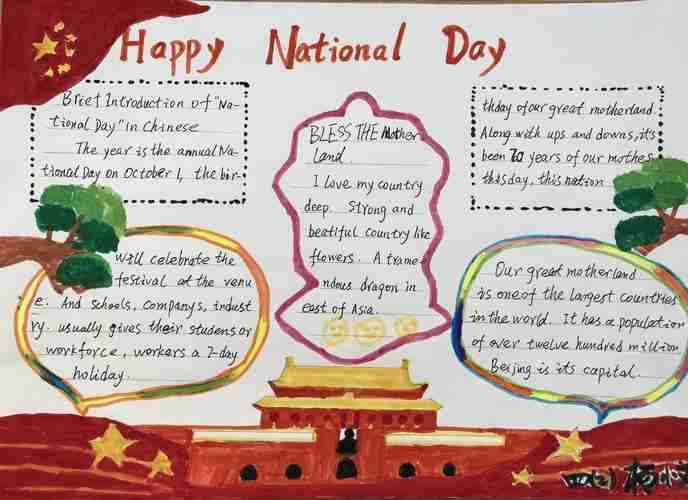 Happy National Day
Brief Introduction of "Na-
tional Day" in Chinese
The year is the annual Na-
tional Day on October 1, the bir-
thday of our great motherland.
Along with ups and downs, it's
been 70 years of our mother
this day, this nation
will celebrate the
festival at the venu
e. And schools, companys, indust
ry. usually gives their studens or
workforce, workers a 7-day
holiday.
BLESS THE Mother
Land.
I love my country
deep. Strong and
beatiful country like
flowers. A treme-
ndous dragon in
east of Asia.
Our great motherland
is one of the largest countries
in the world. It has a population
of over twelve hundred million
Beijing is its capital.
四(2) 杨